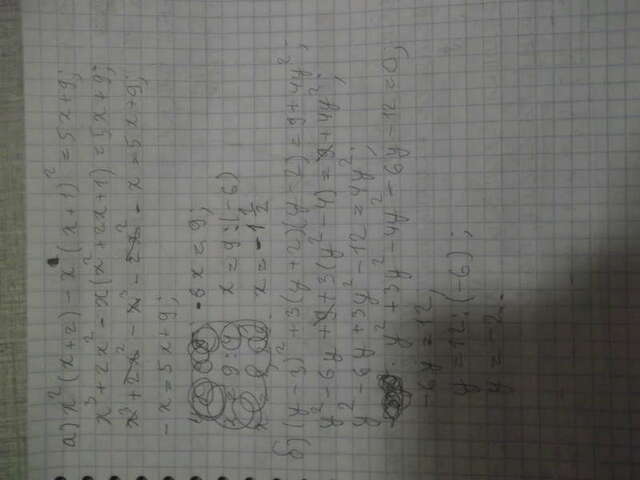 а) x²(x+2) - x(x+1)² = 5x+9;
x³ + 2x² - x(x²+2x+1) = 5x+9;
x³ + 2x² - x³ - 2x² - x = 5x+9;
- x = 5x+9;
-6x = 9;
x = 9:(-6)
x = -1 1/2
б) (y-3)² + 3(y+2)(y-2) = 9+4y²;
y² - 6y + 9 + 3(y²-4) = 9+4y²;
y² - 6y + 3y² - 12 = 4y²;
y² + 3y² - 4y² - 6y - 12 = 0;
-6y = 12,
y = 12:(-6);
y = -2.